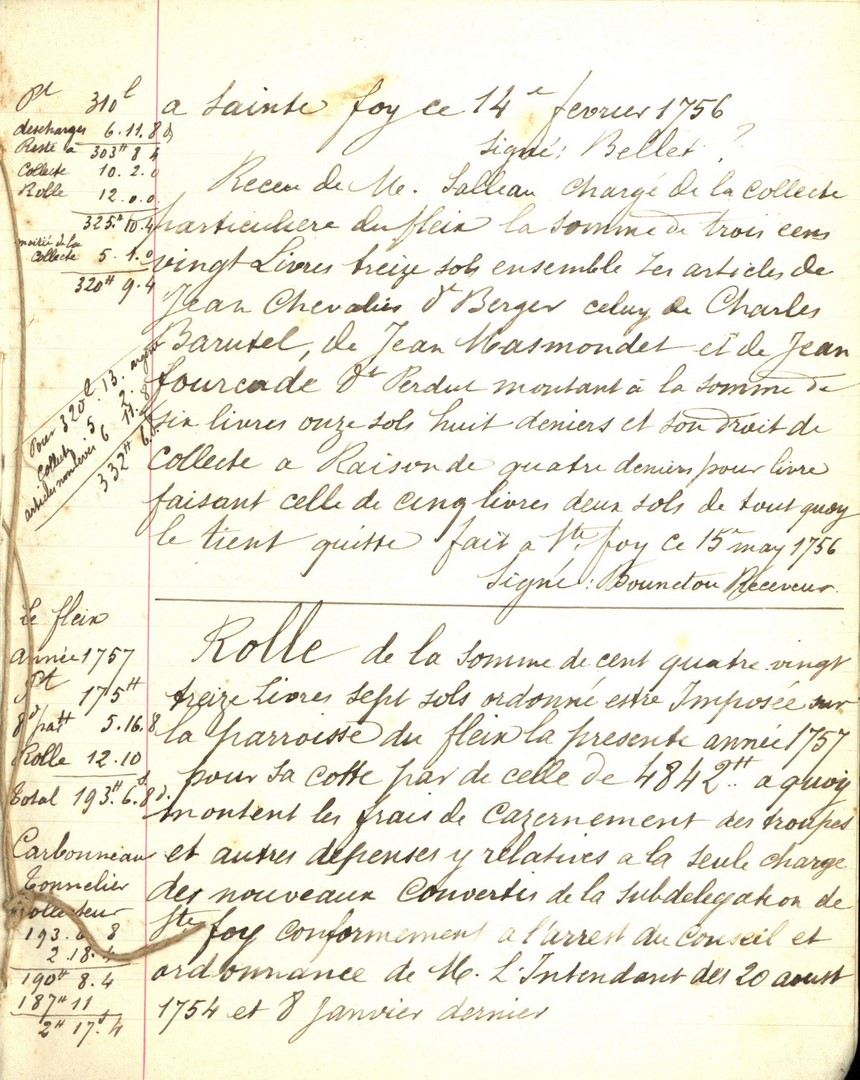 Pt 310l
descharges 6.11.8d
Reste a 303# 8 4
Collecte 10.2.0
Rolle 12.0.0
325.# 10.4
moitié de la
Collecte 5.1.0
320# 9.4
Pour 320l.13. argent
Collecte 5 2.
articles non levés 6 11.8
332# 6.8
a Sainte foy ce 14e fevrier 1756
Signé: Bellet ?
Receu de M. Salleau chargé de la collecte
particuliere du fleix la somme de trois cens
vingt Livres treize sols ensemble les articles de
Jean Chevalier dt Berger celuy de Charles
Barutel, de Jean Masmondet et de Jean
fourcade dt Perdut montant à la somme de
six livres onze sols huit deniers et son droit de
Collecte a Raison de quatre deniers pour livre
faisant celle de cinq livres deux sols de tout quoy
le tient quitte fait a Ste foy ce 15 may 1756
Signé: Bouneton Receveur
Le fleix
année 1757
Pt 175#
8d par# 5.16.8
Rolle 12.10
Total 193.# 6.s 8d.
Carbonneau
Tonnelier
Collecteur
193.6 8
2.18.4
190# 8.4
187# 11
2# 17s.4
Rolle de la somme de cent quatre vingt
treize Livres sept sols ordonné estre Imposée sur
la parroisse du fleix la presente année 1757
pour sa cotte par de celle de 4842# a quoy
montent les frais de Cazernement des troupes
et autres depenses y relatives a la seule charge
des nouveaux Convertis de la subdelegation de
Ste foy conformement a l'arrest du conseil et
ordonnance de M. L'Intendant des 20 aoust
1754 et 8 Janvier dernier